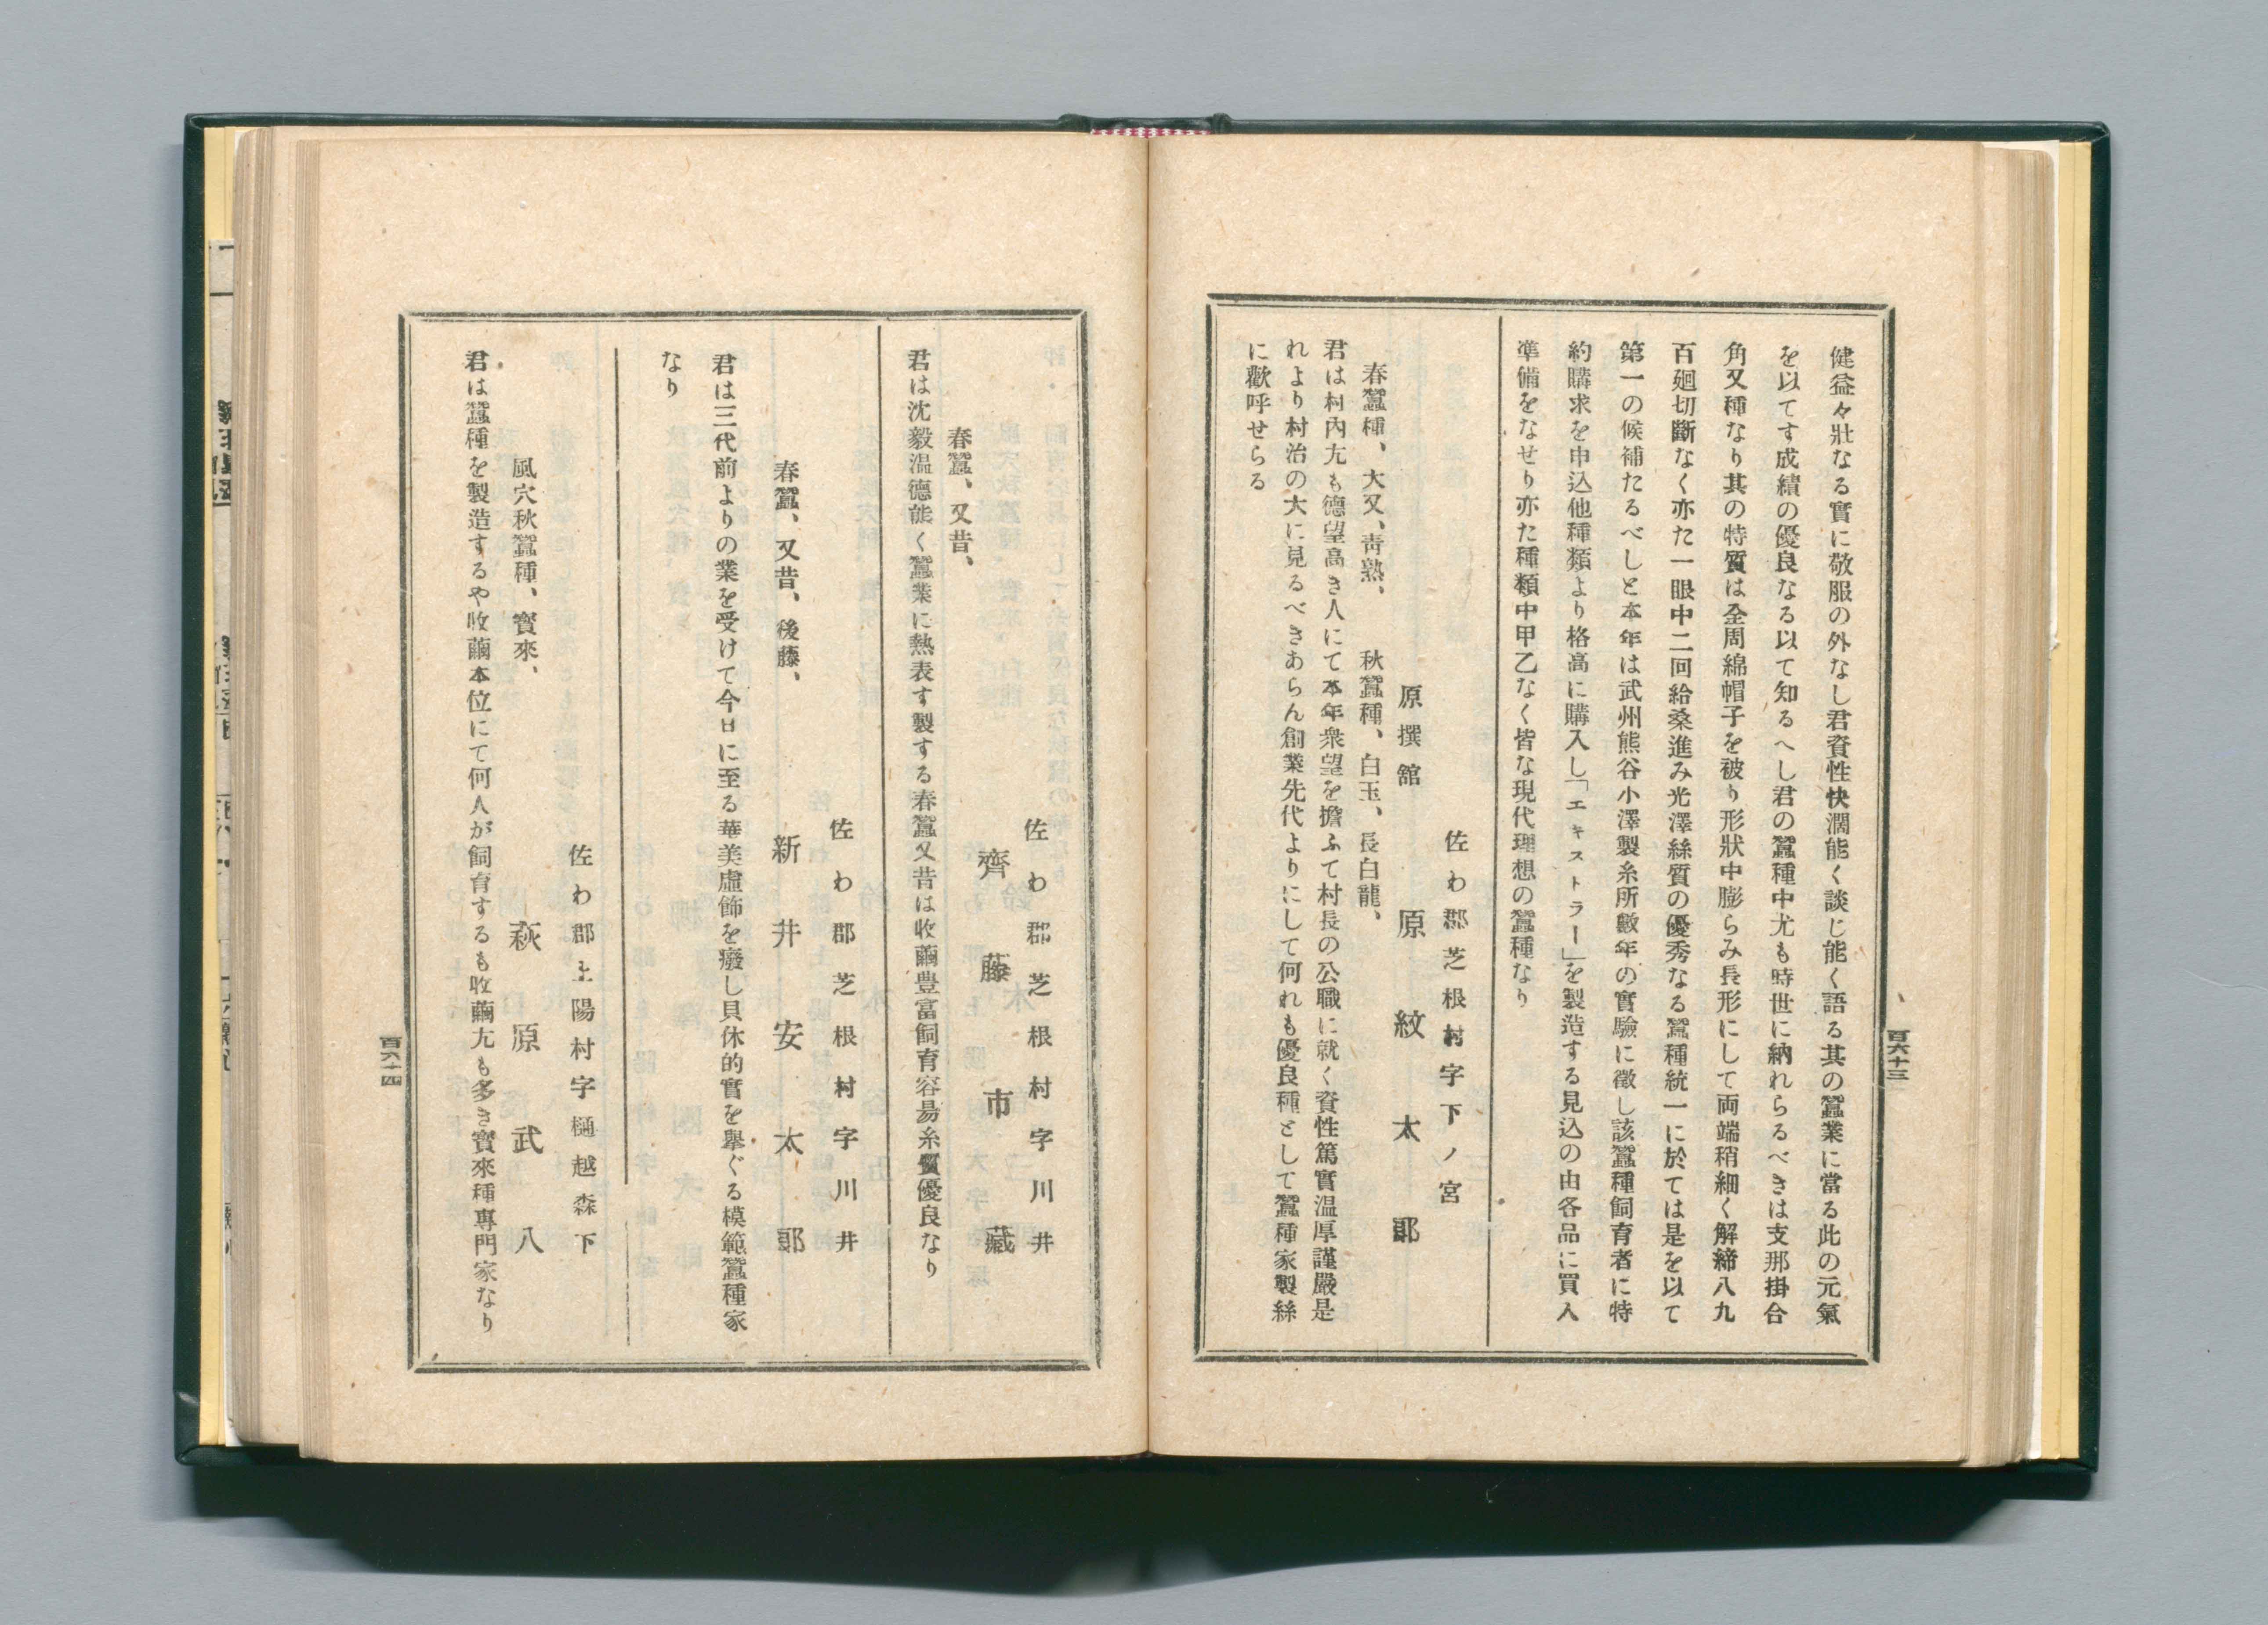 健益々壯なる實に敬服の外なし君資性快濶能く談じ能く語る其の蠶業に當る此の元氣
を以てす成績の優良なる以て知るへし君の蠶種中尤も時世に納れらるべきは支那掛合
角又種なり其の特質は全周綿帽子を被り形狀中膨らみ長形にして両端稍細く解締八九
百廻切斷なく亦た一眼中二回給桑進み光澤絲質の優秀なる蠶種統一に於ては是を以て
第一の候補たるべしと本年は武州熊谷小澤製糸所數年の實驗に徵し該蠶種飼育者に特
約購求を申込他種類より格高に購入し「エキストラー」を製造する見込の由各品に買入
準備をなせり亦た種類中甲乙なく皆な現代理想の蠶種なり
佐わ郡芝根村字下ノ宮
原撰舘　原紋太郎
春蠶種、大又、靑熟、　秋蠶種、白玉、長白龍、
君は村內尤も德望高き人にて本年衆望を擔ふて村長の公職に就く資性篤實温厚謹嚴是
れより村治の大に見るべきあらん創業先代よりにして何れも優良種として蠶種家製絲
に歡呼せらる
百六十三
佐わ郡芝根村字川井
齊藤市藏
春蠶、又昔、
君は沈毅温德能く蠶業に熱表す製する春蠶又昔は收繭豊富飼育容易糸質優良なり
佐わ郡芝根村字川井
新井安太郎
春蠶、又昔、後藤、
君は三代前よりの業を受けて今日に至る華美虛飾を癈し貝休的實を擧ぐる模範蠶種家
なり
佐わ郡上陽村字樋越森下
萩原武八
風穴秋蠶種、寶來、
君は蠶種を製造するや收繭本位にて何人が飼育するも收繭尤も多き寶來種專門家なり
百六十四